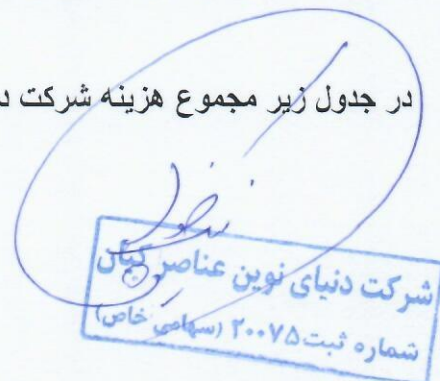 در جدول زیر مجموع هزینه شرکت د
شرکت دنیای نوین عناصر کیان
شماره ثبت ۲۰۰۷۵ (سهامی خاص)